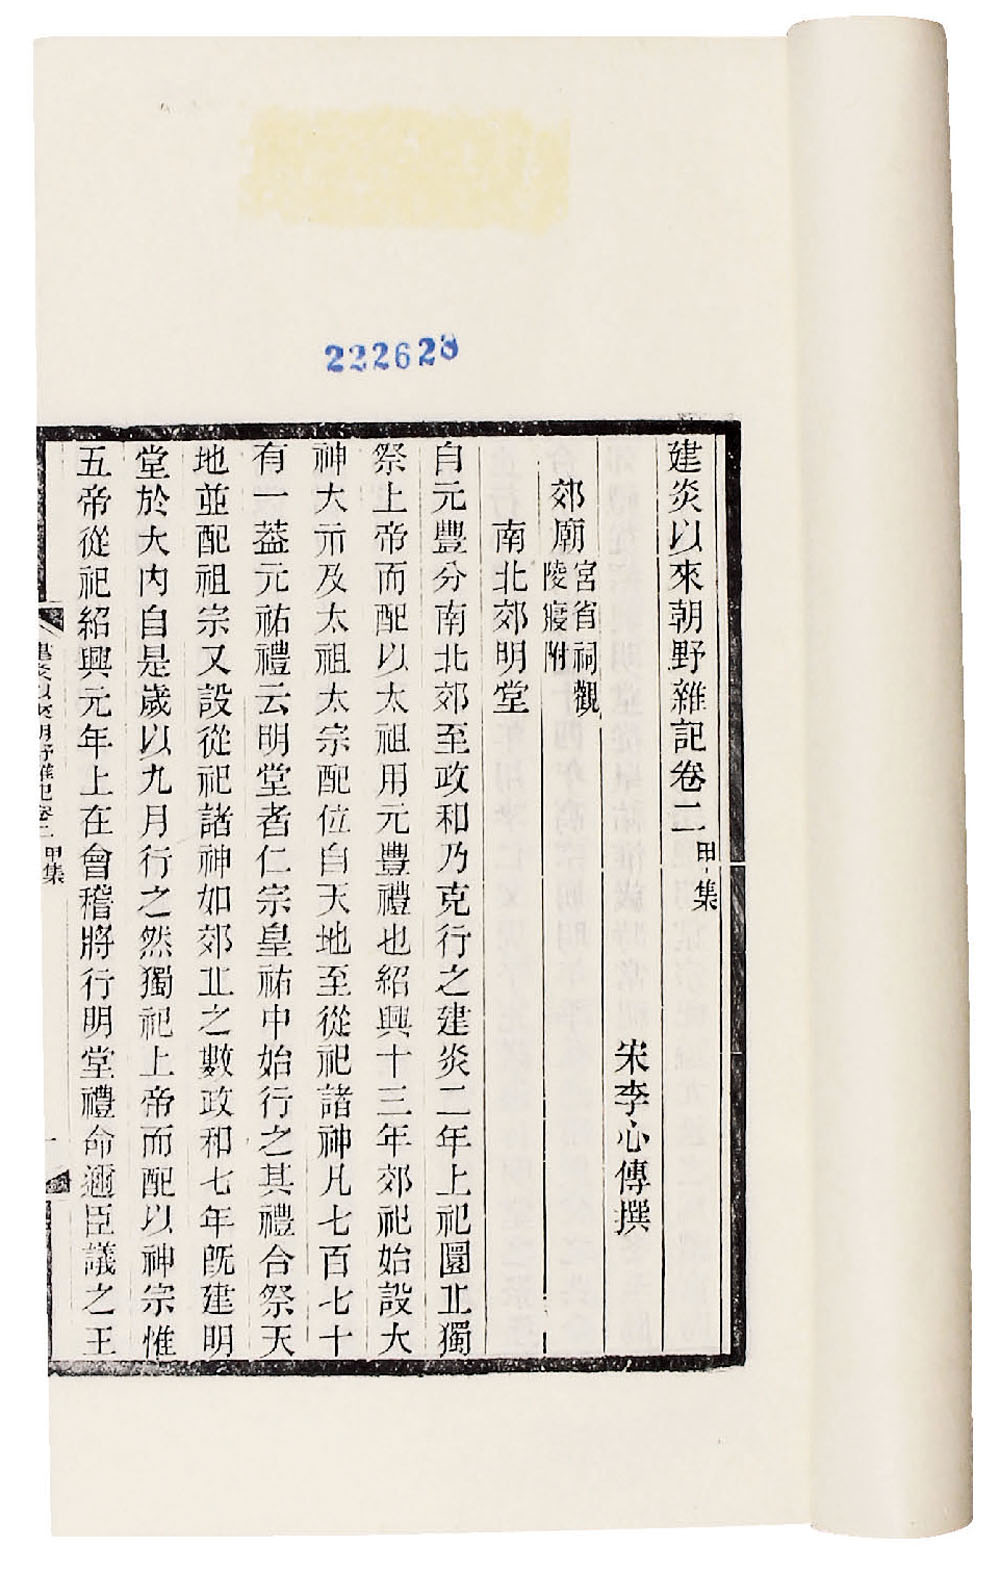 222628
建炎以來朝野雜記卷二 甲集
宋李心傳撰
郊廟 宮省祠觀
陵寢附
南北郊明堂
自元豐分南北郊至政和乃克行之建炎二年上祀圜丠獨
祭上帝而配以太祖用元豐禮也紹興十三年郊祀始設大
神大示及太祖太宗配位自天地至從祀諸神凡七百七十
有一蓋元祐禮云明堂者仁宗皇祐中始行之其禮合祭天
地並配祖宗又設從祀諸神如郊丠之數政和七年旣建明
堂於大內自是歲以九月行之然獨祀上帝而配以神宗惟
五帝從祀紹興元年上在會稽將行明堂禮命邇臣議之王
建炎以來朝野雜記卷二 甲集
一